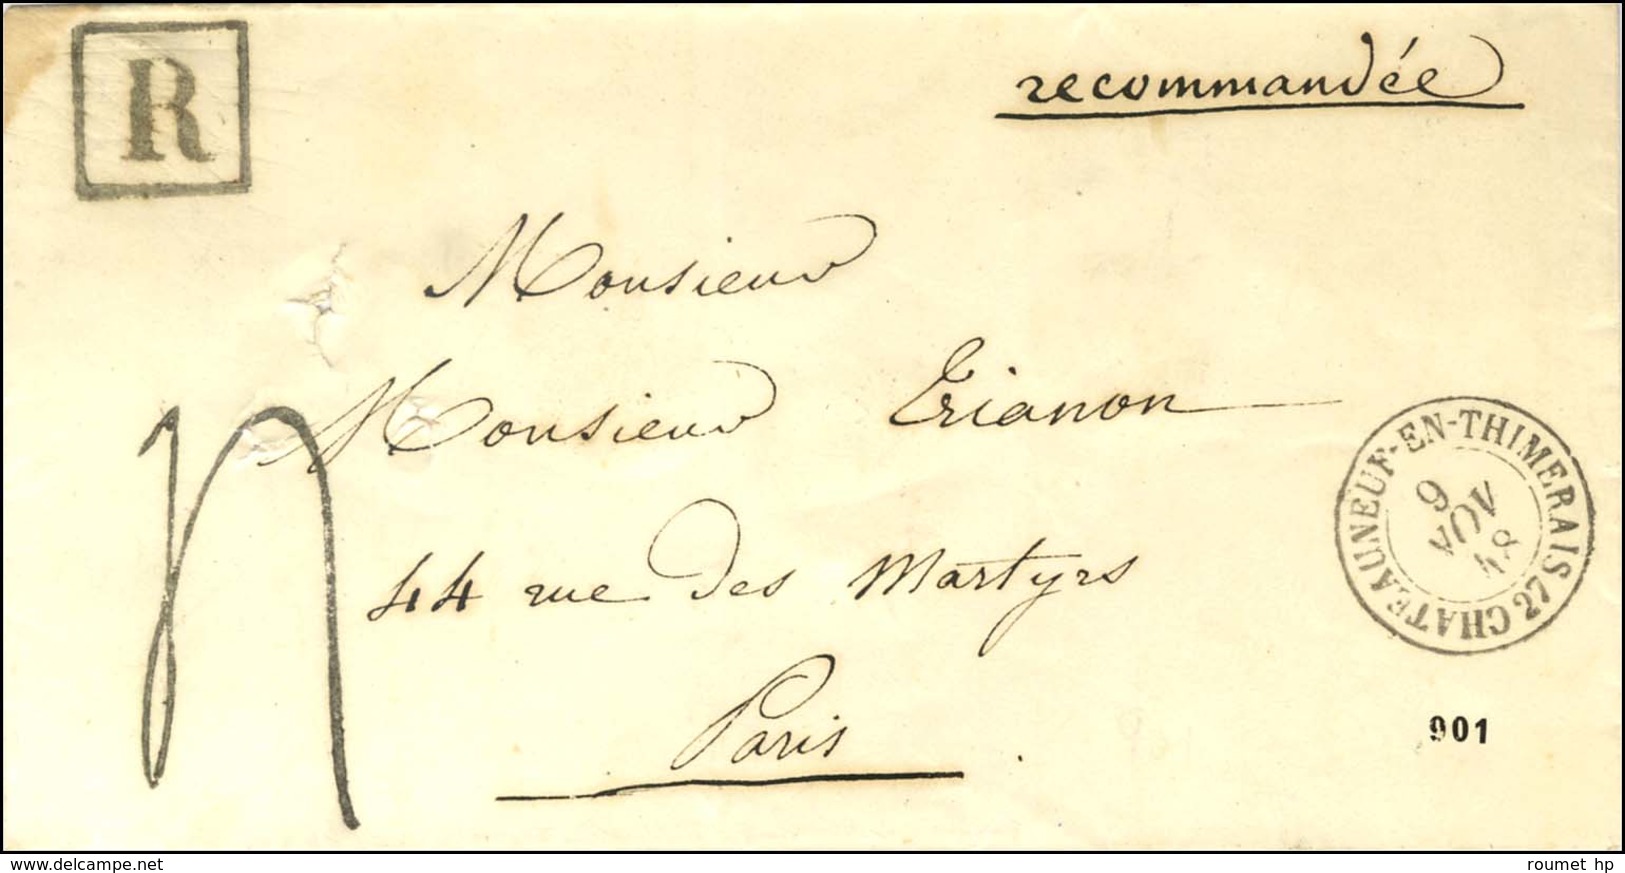 R
recommandée
Monsieur
Monsieur Trianon
44 rue des Martyrs
Paris
CHATEAUNEUF-EN-THIMERAIS 27
9
NOV
48
901
www.delcampe.net
roumet hp